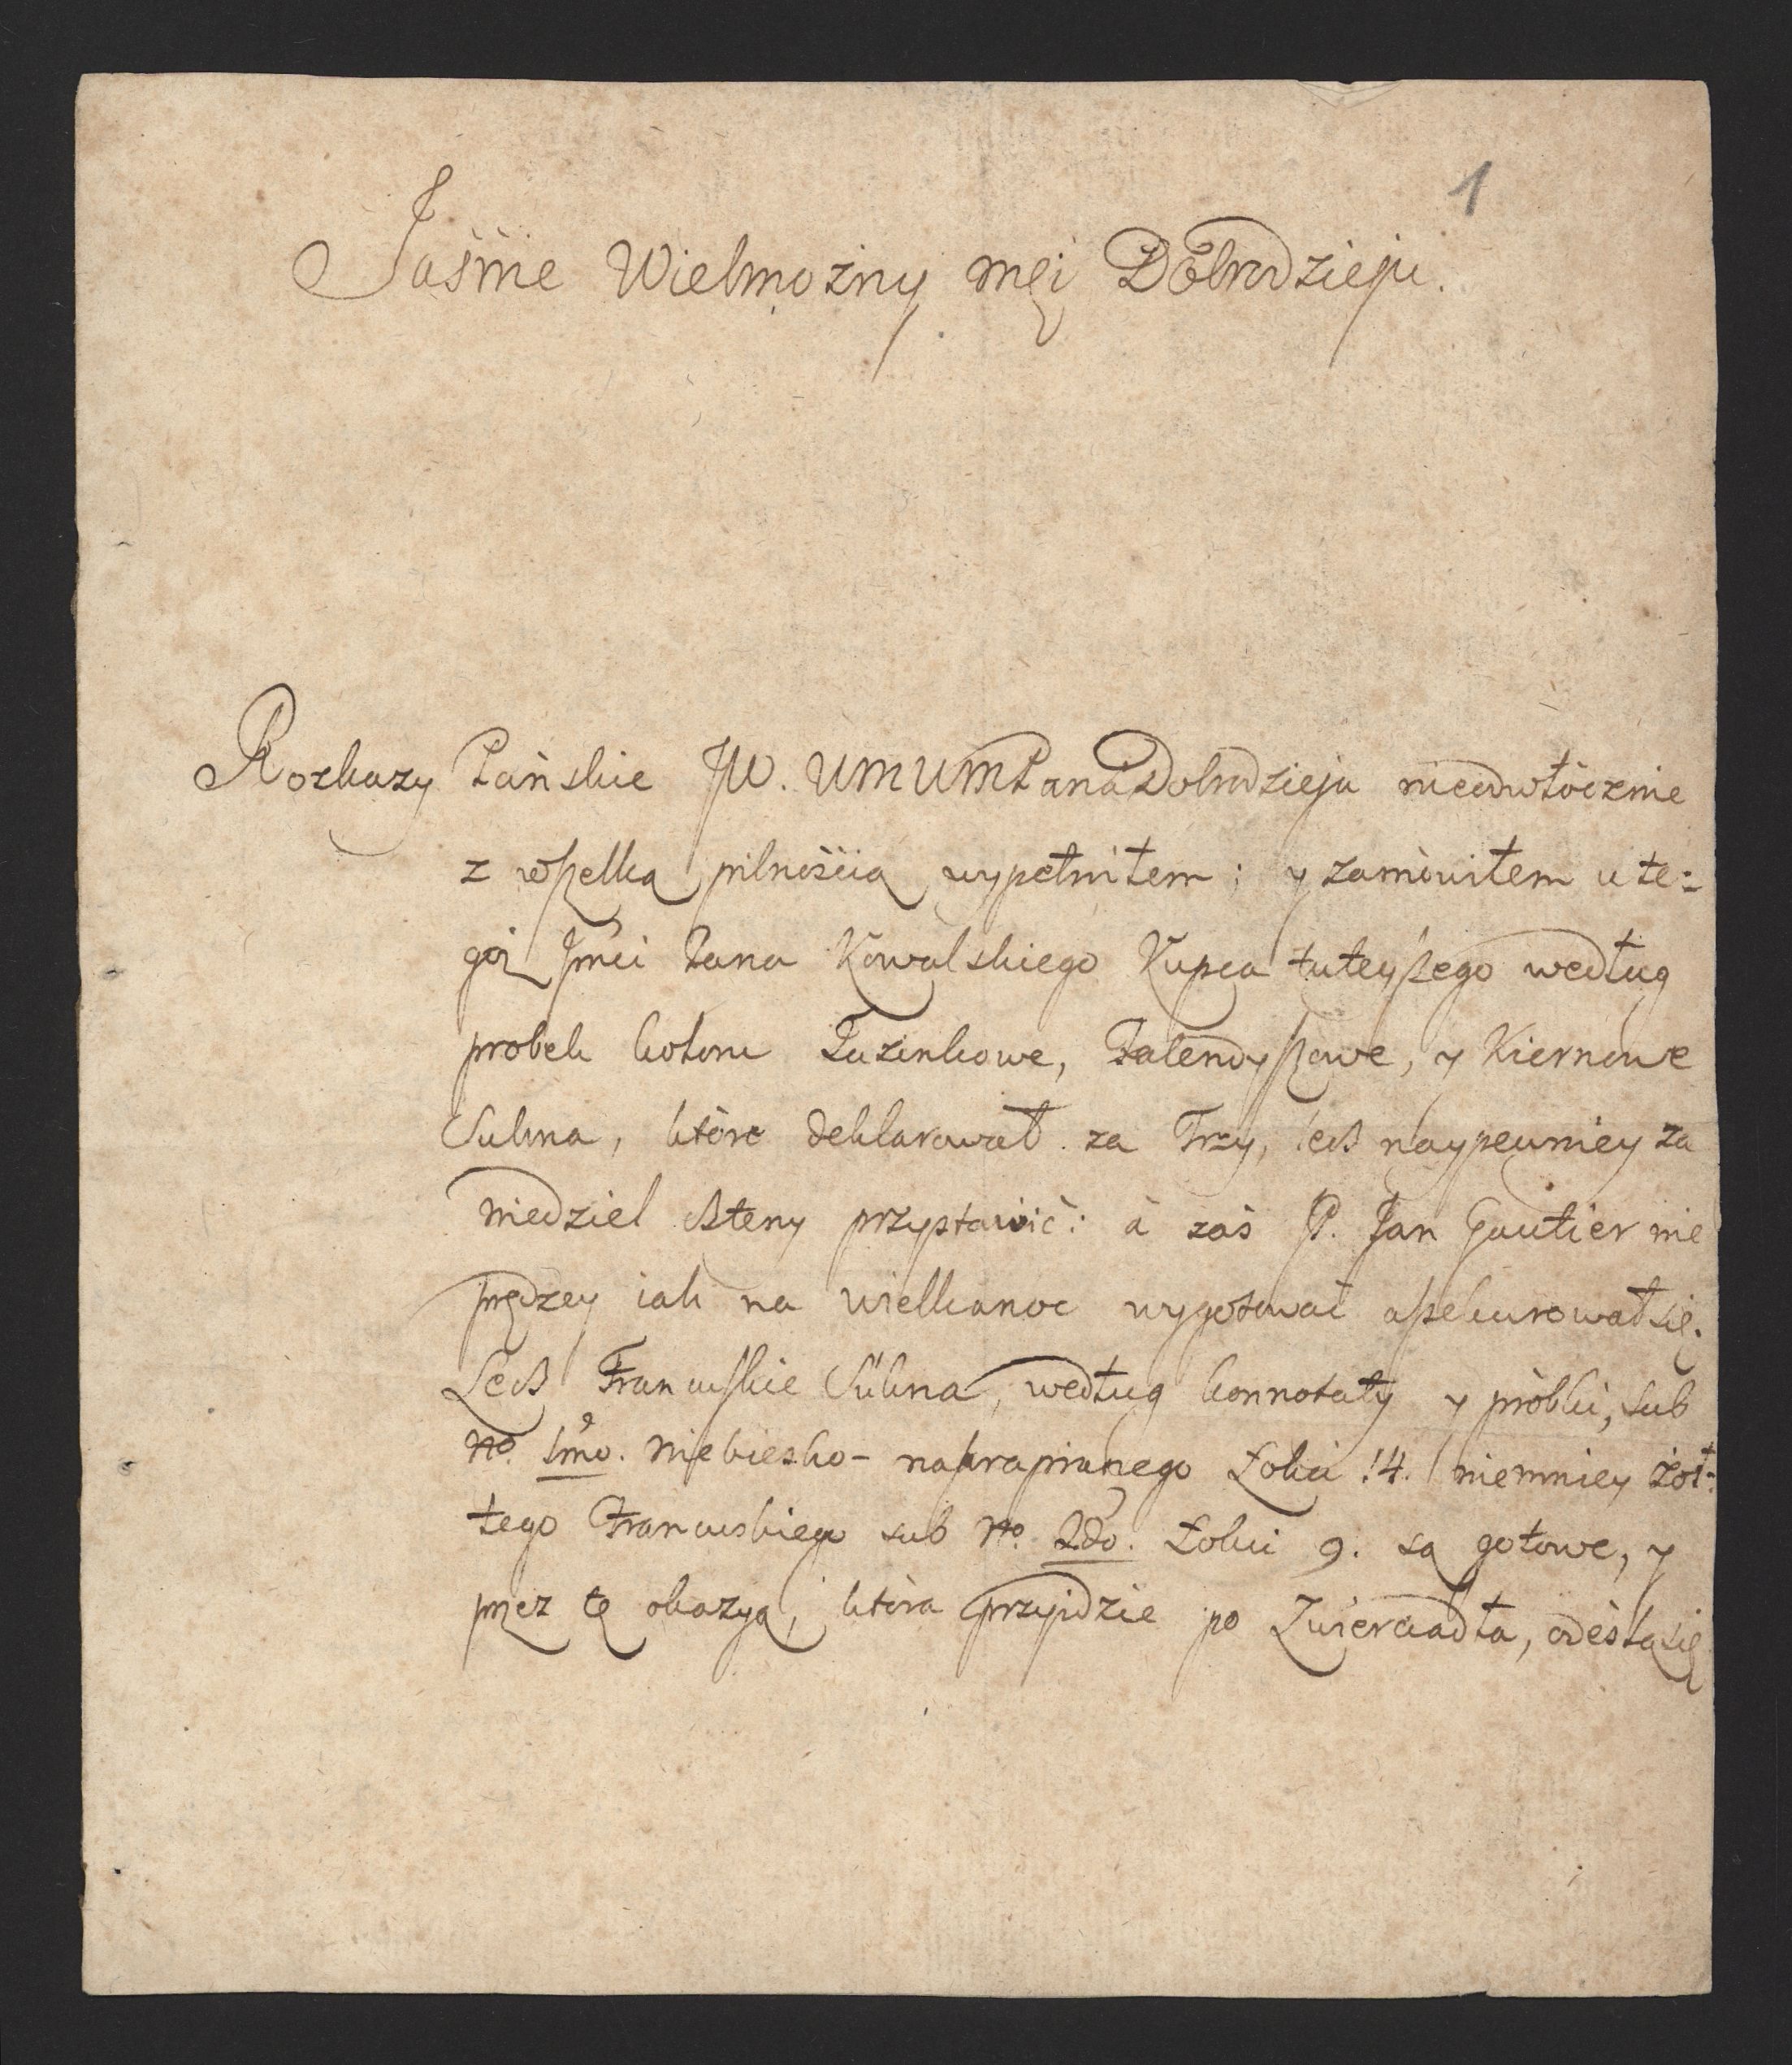 1
Jaśnie Wielmożny mći Dobrodzieju.
Rozkazy Pańskie JW. WMWMPana Dobrodzieja nieodwłócznie
z wszelką pilnością wypełniłem; y zamówiłem u te=
goż Jmći Pana Kowalskiego Kupca tuteyszego według
probek koloru Pazinkowe, Falendyszowe, y Kiernowe
Sukna, które deklarował za Trzy, lecz naypewniey za
niedziel cztery przystawić: à zaś P. Jan Gautier nie
prędzey iak na wielkanoc wygotować aszekurował się.
Lecz Francuskie Sukna, według konnotaty y próbki, sub
No. 1mo. niebiesko- nakrapianego Łokci 14. niemniey żoł=
tego Francuskiego sub No. 2do. Łokci 9. są gotowe, y
przez tę okazyą, która przyjdzie po Zwierciadła, odeszlą się